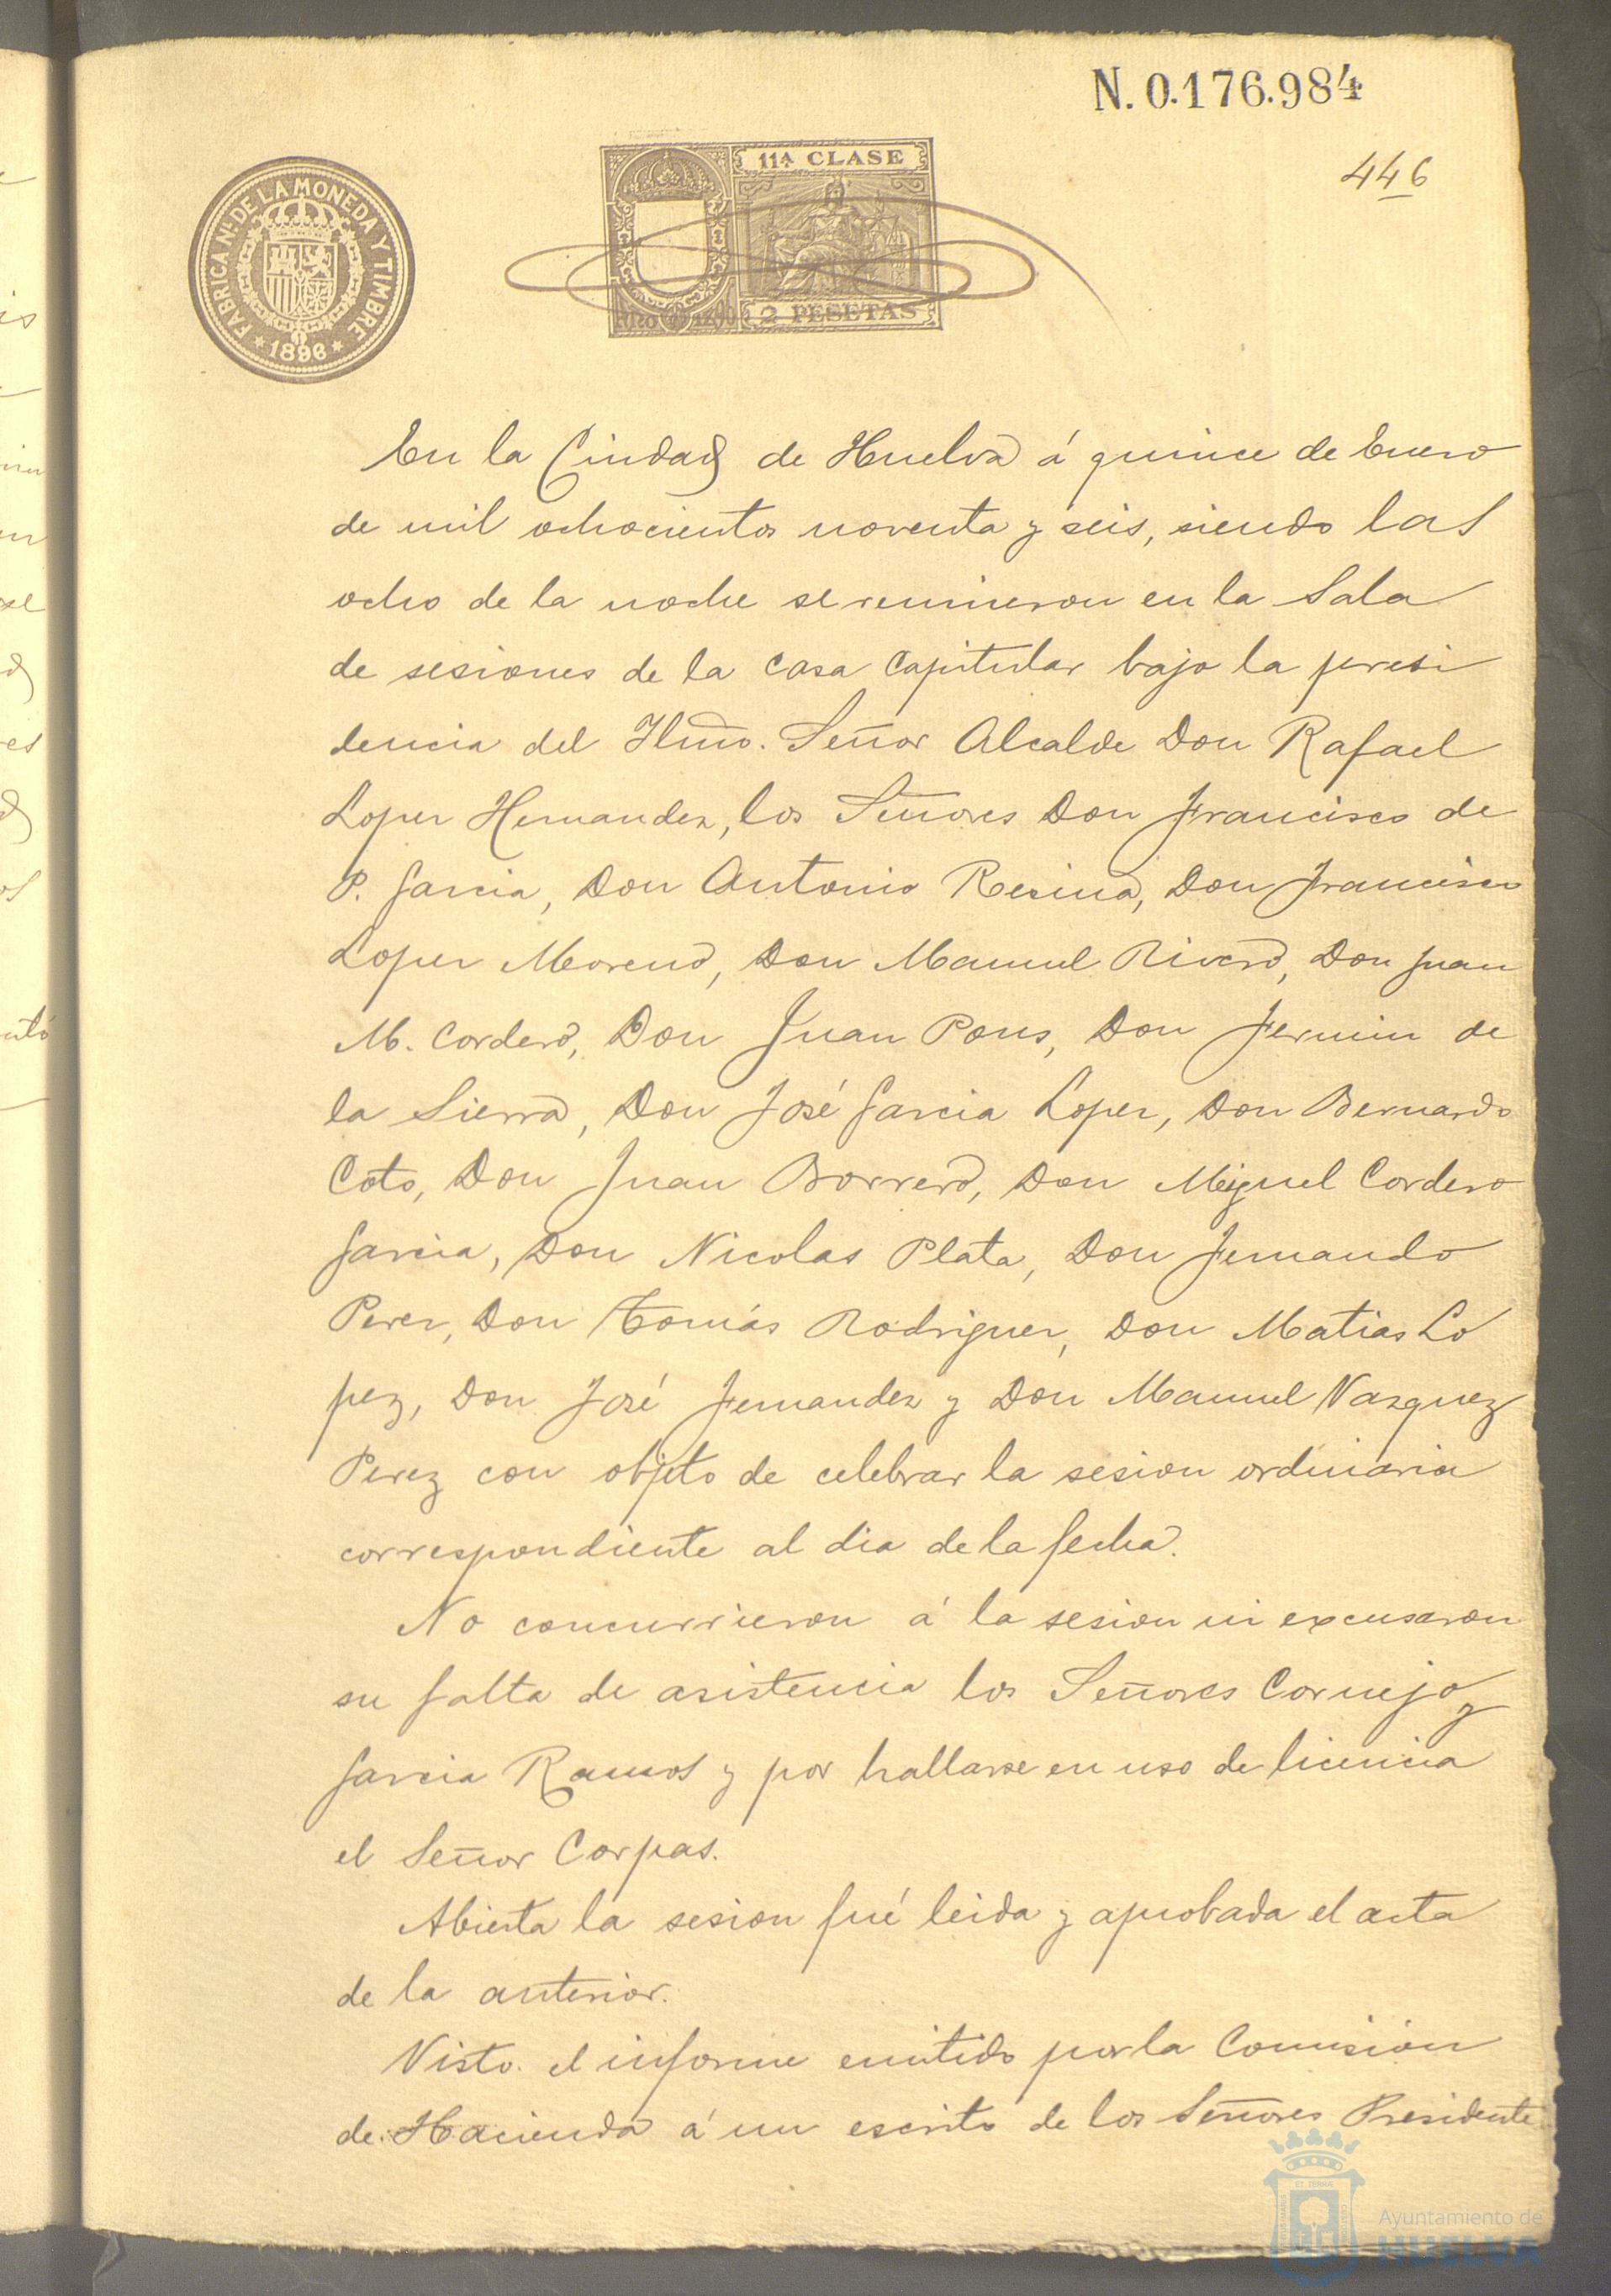 N. 0.176.984
446
FABRICA Nal DE LA MONEDA Y TIMBRE
* 1896 *
11ª CLASE
2 PESETAS
En la Ciudad de Huelva á quince de Enero
de mil ochocientos noventa y seis, siendo las
ocho de la noche se reunieron en la Sala
de sesiones de la Casa Capitular bajo la presi
dencia del Iltmo. Señor Alcalde Don Rafael
Lopez Hernandez, los Señores Don Francisco de
P. Garcia, Don Antonio Resina, Don Francisco
Lopez Moreno, Don Manuel Rivero, Don Juan
M. Cordero, Don Juan Pons, Don Fermin de
la Sierra, Don José Garcia Lopez, Don Bernardo
Coto, Don Juan Borrero, Don Miguel Cordero
Garcia, Don Nicolas Plata, Don Fernando
Perez, Don Tomás Rodriguez, Don Matias Lo
pez, Don José Fernandez y Don Manuel Vazquez
Perez con objeto de celebrar la sesion ordinaria
correspondiente al dia de la fecha.
No concurrieron á la sesion ni excusaron
su falta de asistencia los Señores Cornejo y
Garcia Ramos y por hallarse en uso de licencia
el Señor Corpas.
Abierta la sesion fué leida y aprobada el acta
de la anterior.
Visto el informe emitido por la Comisión
de Hacienda á un escrito de los Señores Presidente
Ayuntamiento de
HUELVA